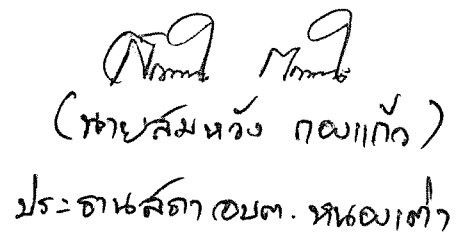 (นายสมหวัง กองแก้ว)
ประธานสภา อบต. หนองเต่า